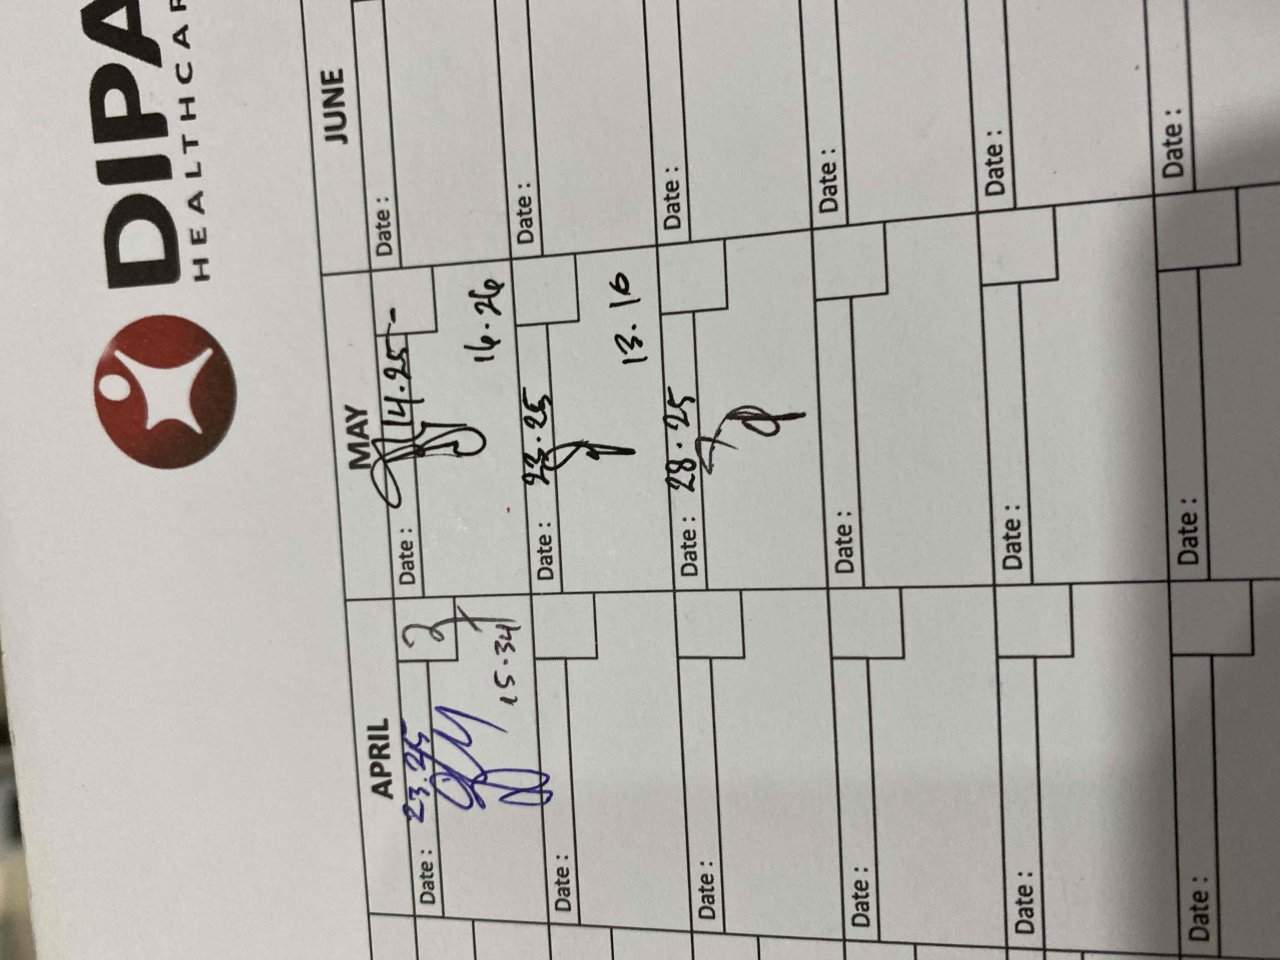 DIPA
HEALTHCAR
APRIL MAY JUNE
Date : 23.25
15.34
Date : 14.25
16.26
Date :
Date :
Date : 23.25
13.10
Date :
Date :
Date : 28.25
Date :
Date :
Date :
Date :
Date :
Date :
Date :
Date :
Date :
Date :